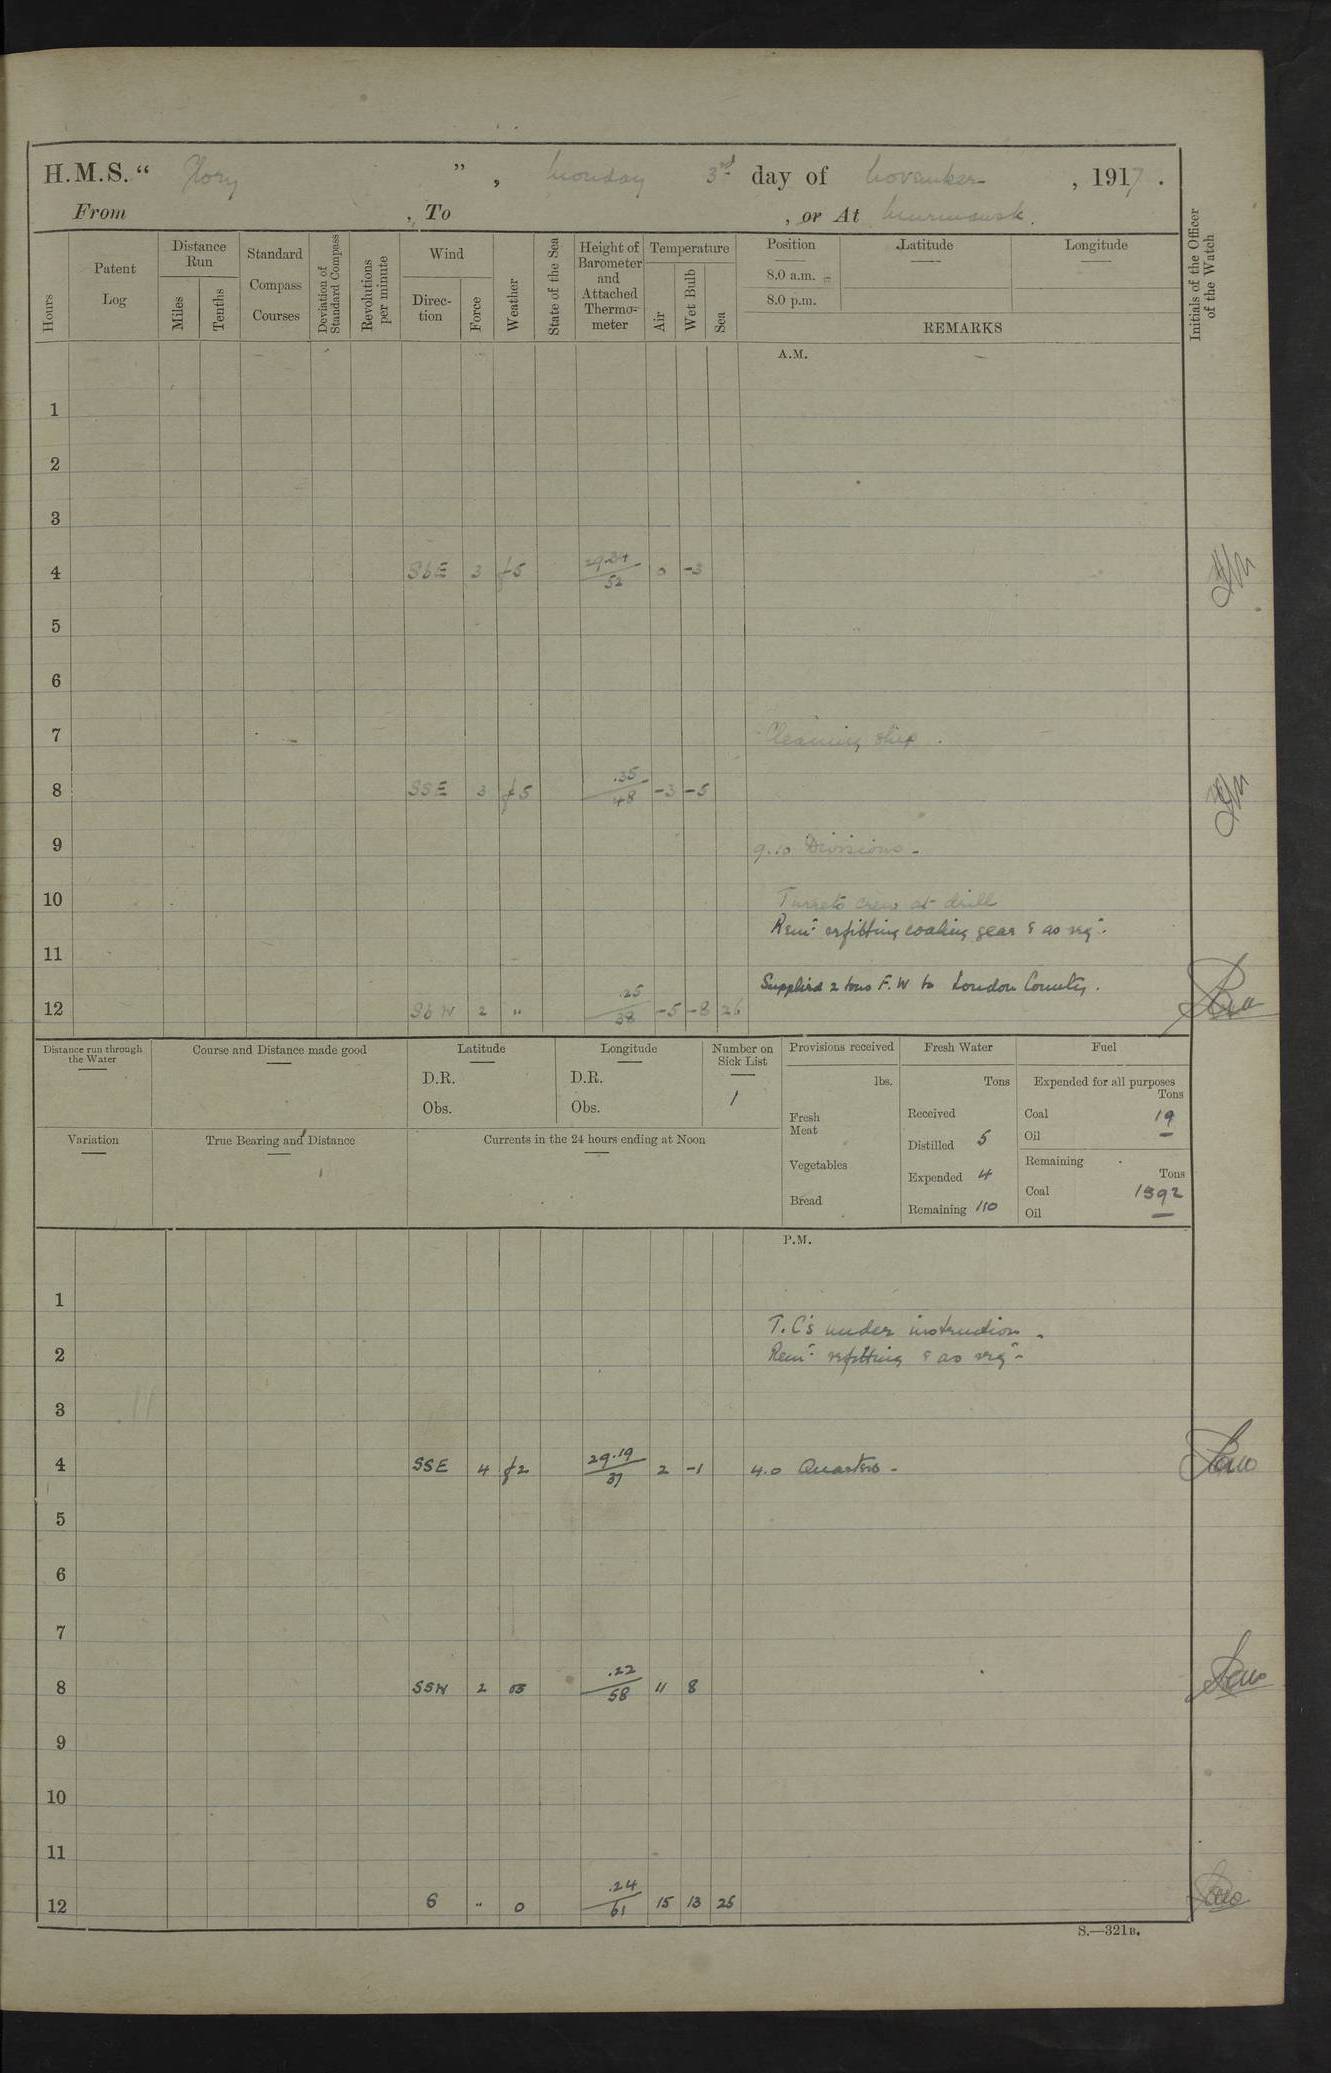 H.M.S. " Glory ", Monday 3rd day of November, 1917.
From , To , or At Murmansk.
Hours
Patent Log
Distance Run
Miles
Tenths
Standard Compass Courses
Deviation of Standard Compass
Revolutions per minute
Wind
Direction
Force
Weather
State of the Sea
Height of Barometer and Attached Thermometer
Temperature
Air
Wet Bulb
Sea
Position
8.0 a.m.
8.0 p.m.
Latitude
Longitude
REMARKS
Initials of the Officer of the Watch
A.M.
1
2
3
4 SbE 3 f5 29.24/52 0 -3
5
6
7 Cleaning ship.
8 SSE 3 f5 .35/48 -3 -5
9 9.10 Divisions -
10 Turrets crew at drill
Remr refitting coaling gear & as reqr.
11
Supplied 2 tons F.W to London County.
12 SbW 2 " .25/38 -5 -8 26
Distance run through the Water
Course and Distance made good
Latitude
D.R.
Obs.
Longitude
D.R.
Obs.
Number on Sick List
1
Provisions received
lbs.
Fresh Meat
Vegetables
Bread
Fresh Water
Tons
Received
Distilled 5
Expended 4
Remaining 110
Fuel
Expended for all purposes
Tons
Coal 19
Oil —
Remaining
Tons
Coal 1392
Oil —
Variation
True Bearing and Distance
Currents in the 24 hours ending at Noon
P.M.
1
T.C's under instruction -
2 Remr refitting & as reqr -
3
4 SSE 4 f2 29.19/37 2 -1 4.0 Quarters -
5
6
7
8 SSW 2 .22/58 11 8
9
10
11
12 S " 0 .24/61 15 13 25
S.—321B.